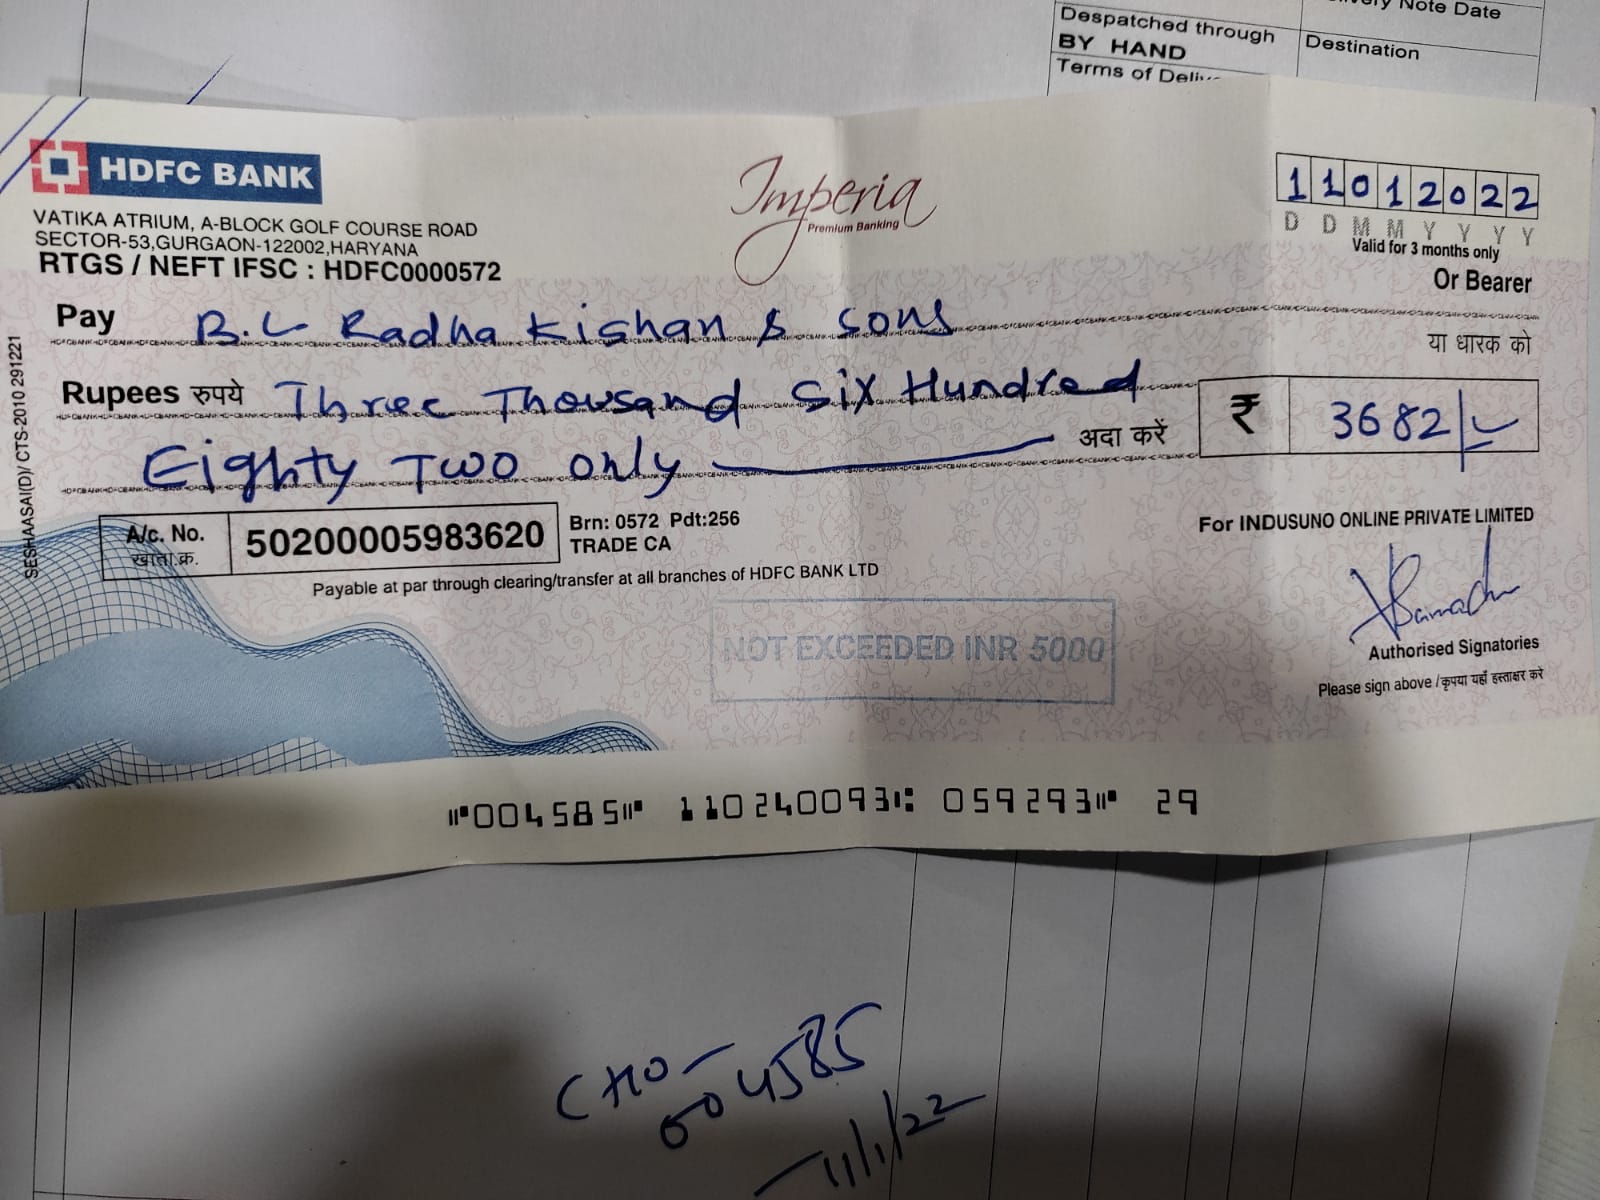 Despatched through
BY HAND
Terms of
Note Date
Destination
HDFC BANK
VATIKA ATRIUM, A-BLOCK GOLF COURSE ROAD
SECTOR-53,GURGAON-122002,HARYANA
RTGS / NEFT IFSC : HDFC0000572
Imperia
Premium Banking
11012022
D D M M Y Y Y Y
Valid for 3 months only
Or Bearer
Pay B.L Radha Kishan & Sons
या धारक को
Rupees रुपये Three Thousand Six Hundred
Eighty Two only अदा करें
₹ 3682/
A/c. No.
खाता.क्र.
50200005983620
Brn: 0572 Pdt:256
TRADE CA
Payable at par through clearing/transfer at all branches of HDFC BANK LTD
For INDUSUNO ONLINE PRIVATE LIMITED
NOT EXCEEDED INR 5000
Authorised Signatories
Please sign above / कृपया यहाँ हस्ताक्षर करे
SESHAASAI(D)/ CTS-2010 291221
⑈004585⑈ 110240093⑆ 059293⑈ 29
004585
11/1/22